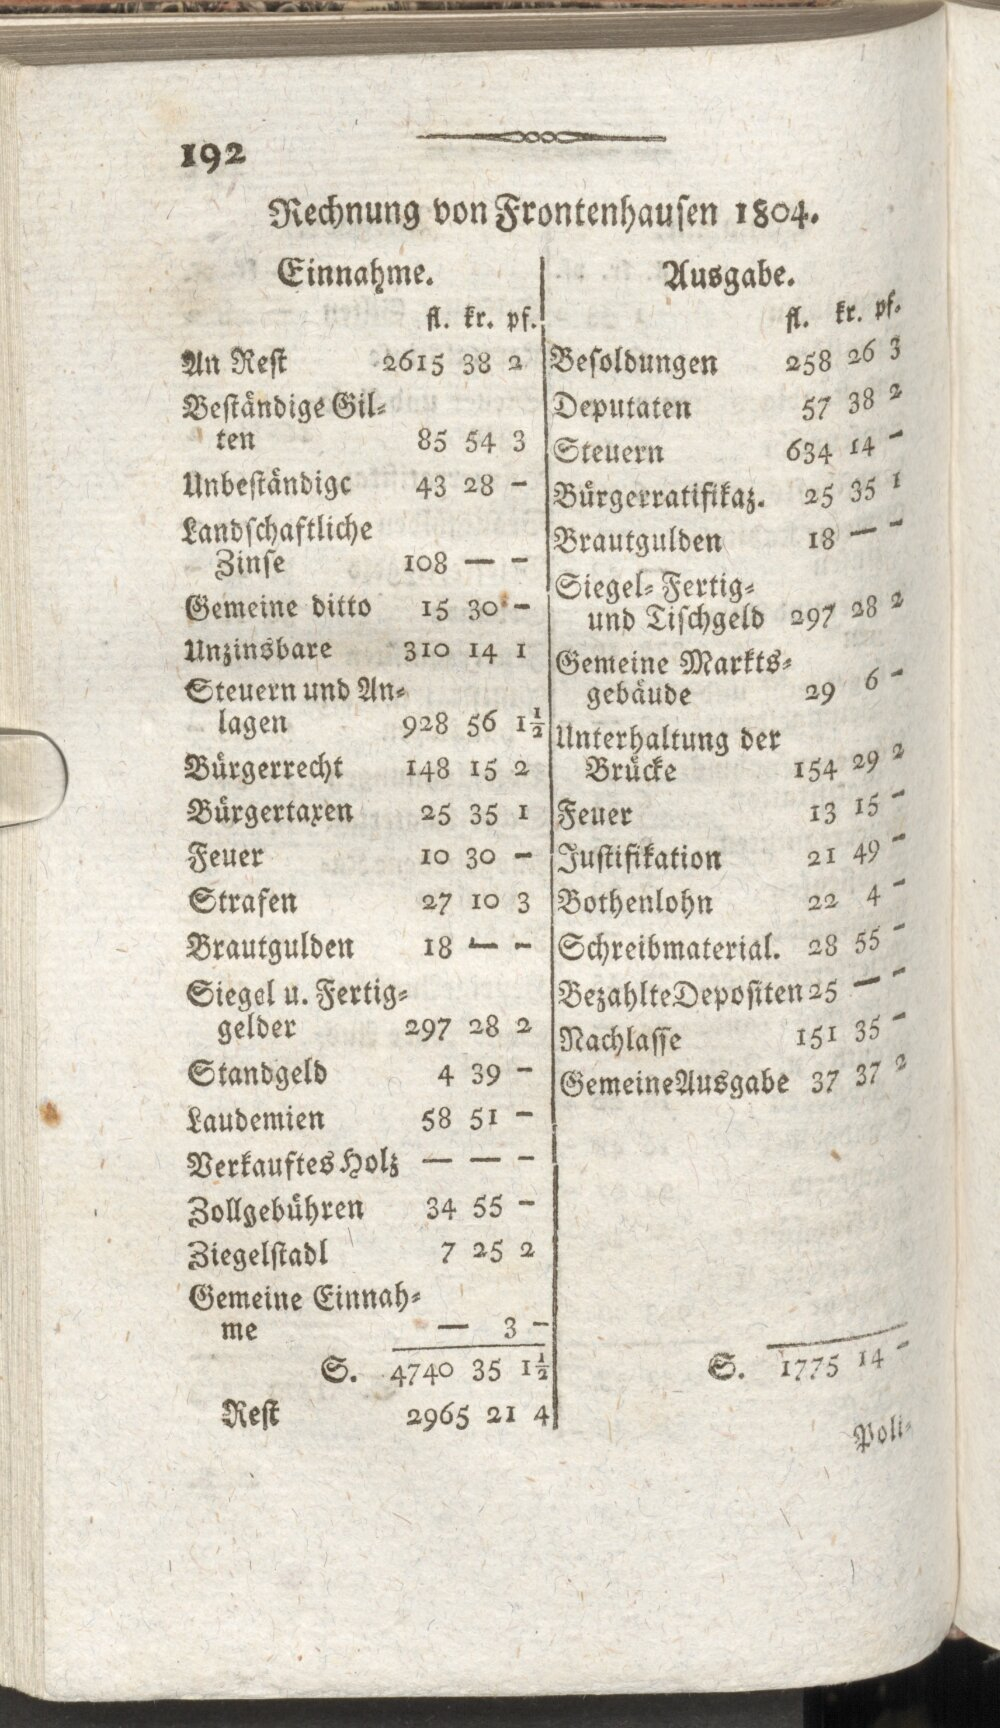 192
Rechnung von Frontenhausen 1804.
Einnahme.
fl. kr. pf.
An Rest 2615 38 2
Beständige Gil-
ten 85 54 3
Unbeständige 43 28 -
Landschaftliche
Zinse 108 — -
Gemeine ditto 15 30 -
Unzinsbare 310 14 1
Steuern und An-
lagen 928 56 1½
Bürgerrecht 148 15 2
Bürgertaxen 25 35 1
Feuer 10 30 -
Strafen 27 10 3
Brautgulden 18 — -
Siegel u. Fertig-
gelder 297 28 2
Standgeld 4 39 -
Laudemien 58 51 -
Verkauftes Holz — — -
Zollgebühren 34 55 -
Ziegelstadl 7 25 2
Gemeine Einnah-
me — 3 -
S. 4740 35 1½
Rest 2965 21 4
Ausgabe.
fl. kr. pf.
Besoldungen 258 26 3
Deputaten 57 38 2
Steuern 634 14 -
Bürgerratifikaz. 25 35 1
Brautgulden 18 — -
Siegel- Fertig-
und Tischgeld 297 28 2
Gemeine Markts-
gebäude 29 6 -
Unterhaltung der
Brücke 154 29 2
Feuer 13 15 -
Justifikation 21 49 -
Bothenlohn 22 4 -
Schreibmaterial. 28 55 -
Bezahlte Depositen 25 — -
Nachlasse 151 35 -
Gemeine Ausgabe 37 37 2
S. 1775 14 -
Poli-